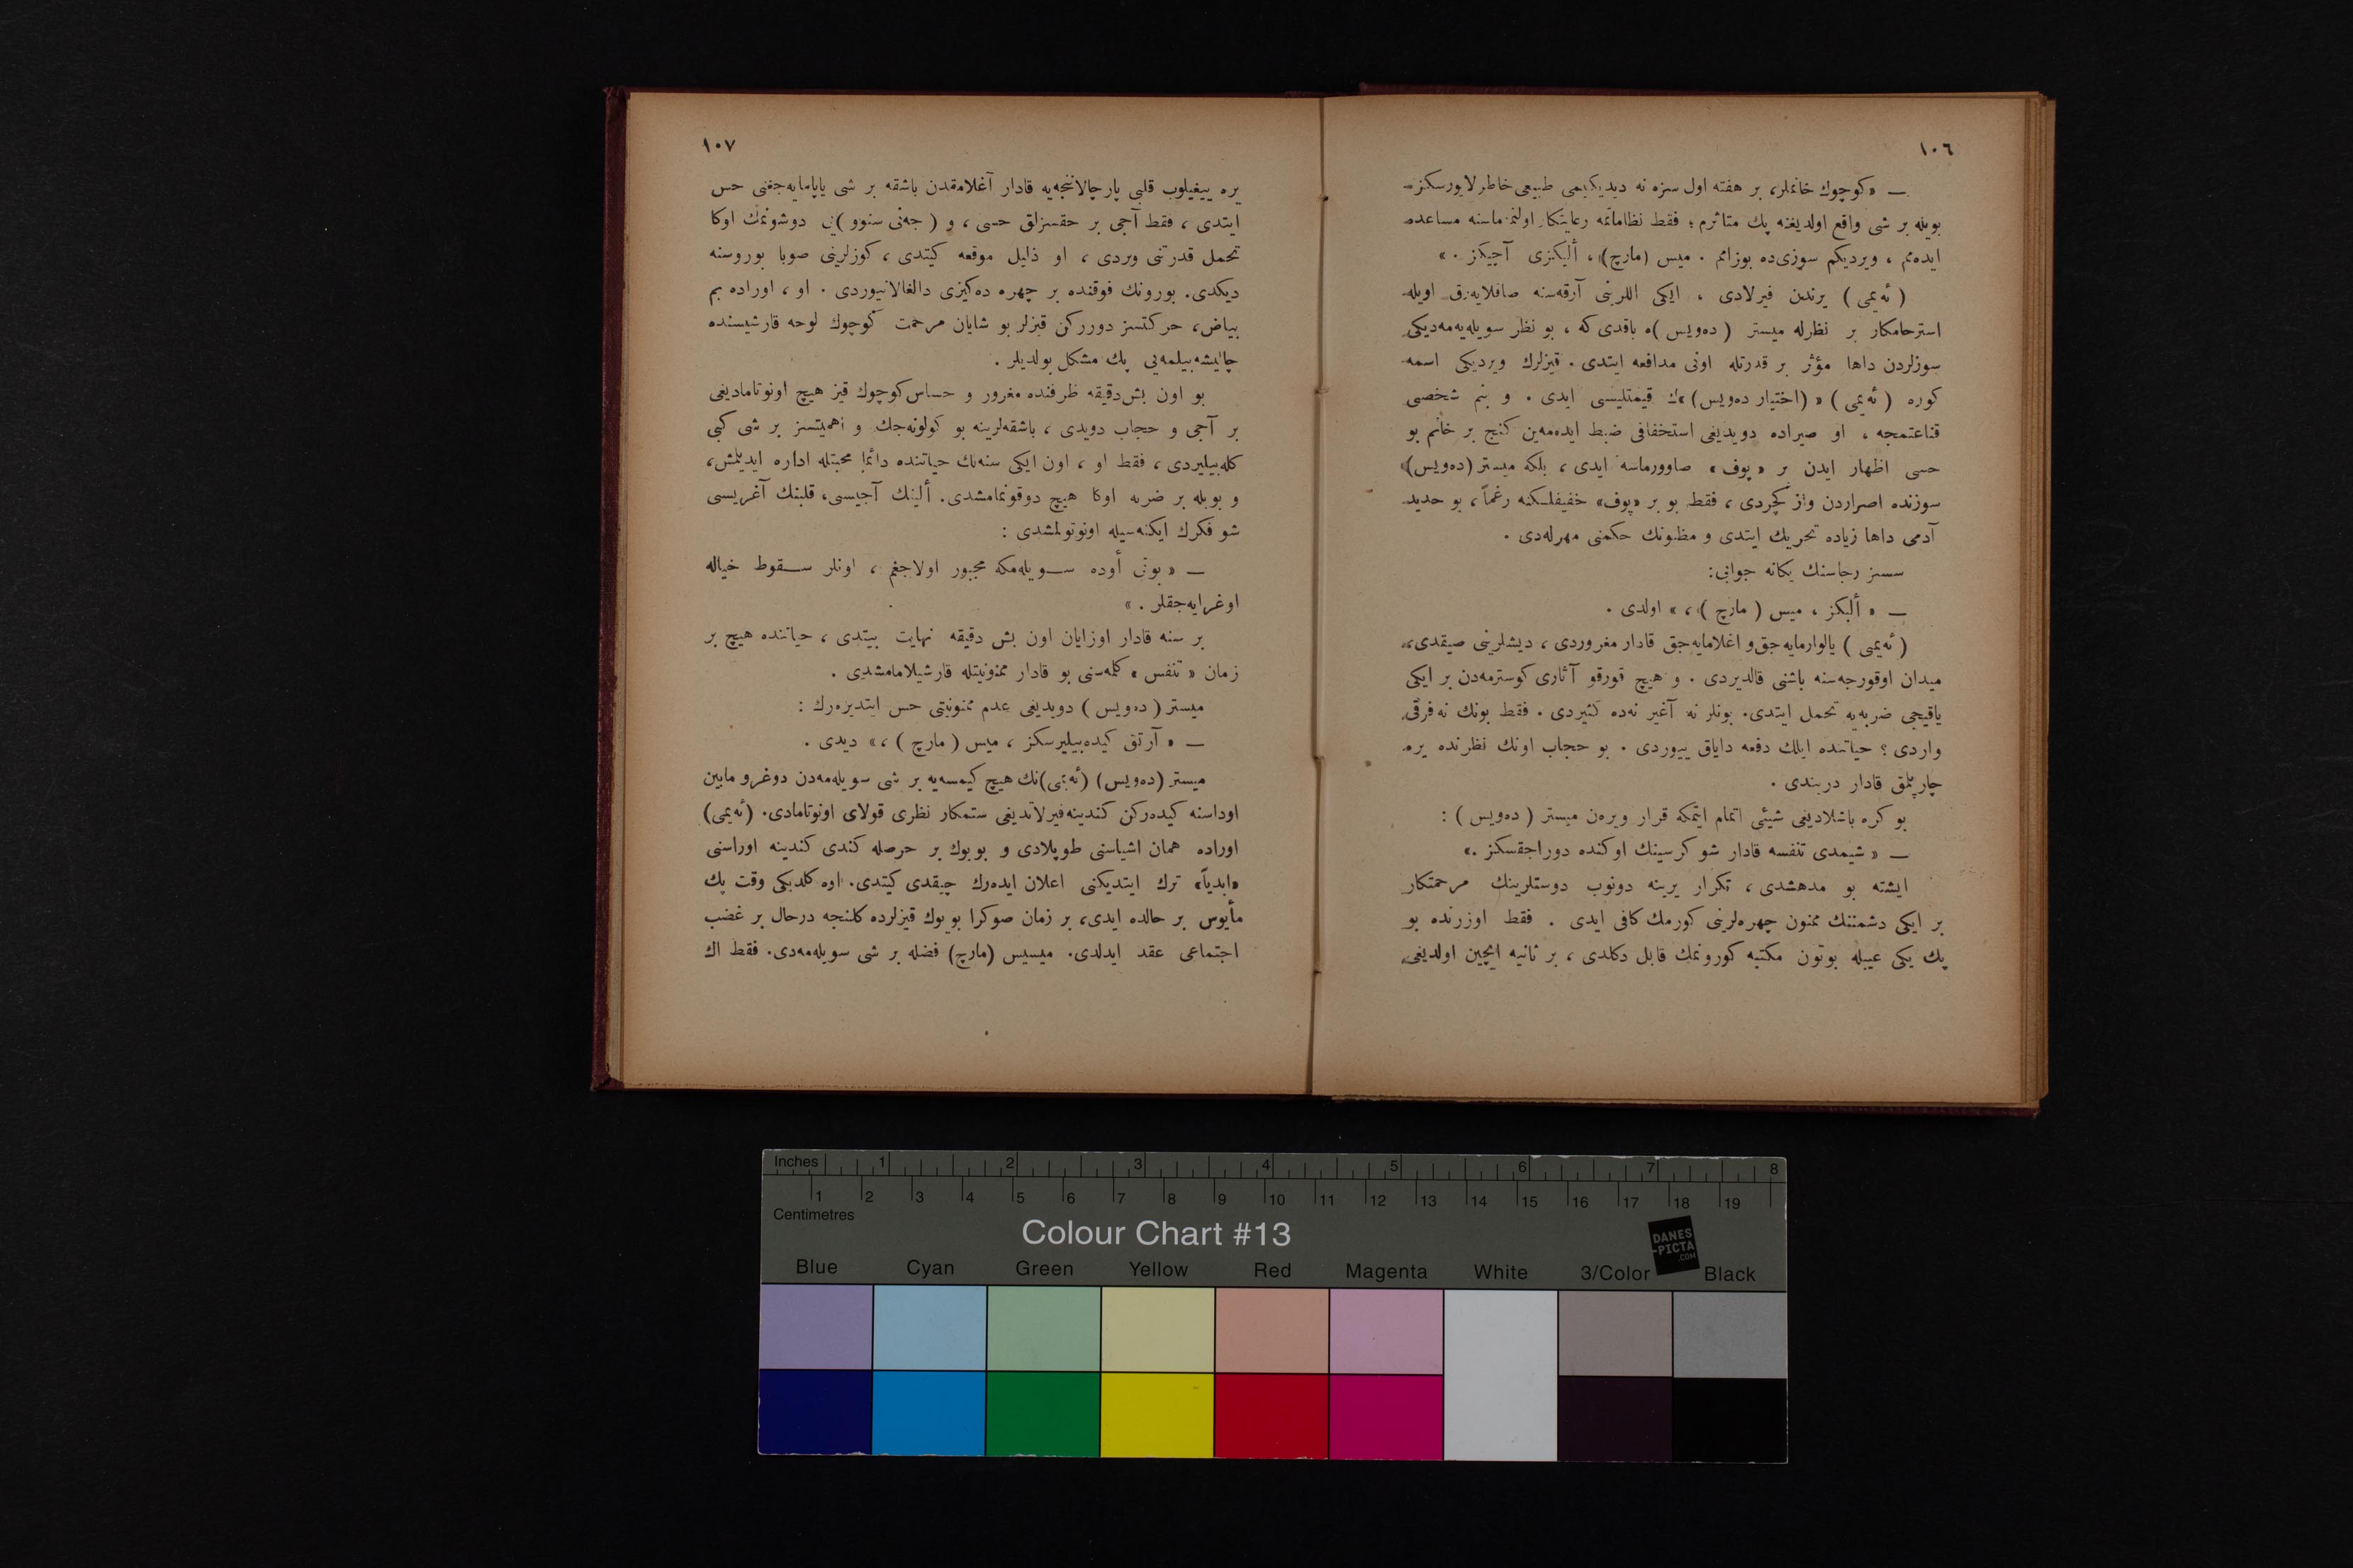 ١٠٦
— «كوچوك خانملر، بر هفته اول سزه نه ديديكيمى طبيعى خاطرلايورسكز.
بويله بر شى واقع اولديغنه پك متأثرم؛ فقط نظاماتمه رعايتكار اولنماماسنه مساعده
ايده‌مم ، ويرديكم سوزى‌ده بوزامم . ميس (مارچ)، أليكزى آچيكز . »
(ئه‌يمى) يرندن فيرلادى ، ايكى اللرينى آرقه‌سنه صاقلايه‌رق اويله
استرحامكار بر نظرله ميستر (ده‌ويس)ه باقدى كه ، بو نظر سويله‌يه‌مه‌ديكى
سوزلردن داها مؤثر بر قدرتله اونى مدافعه ايتدى . قيزلرك ويرديكى اسمه
كوره (ئه‌يمى) «(اختيار ده‌ويس)»ك قيمتليسى ايدى . و بنم شخصى
قناعتمجه ، او صيراده دويديغى استخفافى ضبط ايده‌مه‌ين كنج بر خانم بو
حسى اظهار ايدن بر «پوف» صاوورماسه ايدى ، بلكه ميستر (ده‌ويس)
سوزنده اصراردن واز كچردى ، فقط بو بر «پوف» خفيفلكنه رغماً، بو حديد
آدمى داها زياده تحريك ايتدى و مظنونك حكمنى مهرله‌دى .
سسز رجاسنك يكانه جوابى:
— « أليكز ، ميس (مارچ) ، » اولدى .
(ئه‌يمى) يالوارمايه‌جق و اغلامايه‌جق قادار مغروردى ، ديشلرينى صيقدى،
ميدان اوقورجه‌سنه باشنى قالديردى . و هيچ قورقو آثارى كوسترمه‌دن بر ايكى
ياقيجى ضربه‌يه تحمل ايتدى. بونلر نه آغير نه‌ده كثيردى . فقط بونك نه فرقى
واردى ؟ حياتنده ايلك دفعه داياق ييوردى . بو حجاب اونك نظرنده يره
چارپلمق قادار دريندى .
بو كره باشلاديغى شيئى اتمام ايتمكه قرار ويره‌ن ميستر (ده‌ويس) :
— « شيمدى تنفسه قادار شو كرسينك اوكنده دوراجقسكز .»
ايشته بو مدهشدى ، تكرار يرينه دونوب دوستلرينك مرحمتكار
بر ايكى دشمننك ممنون چهره‌لرينى كورمك كافى ايدى . فقط اوزرنده بو
پك يكى عيبله بوتون مكتبه كورونمك قابل دكلدى ، بر ثانيه ايچين اولديغى
١٠٧
يره ييغيلوب قلبى پارچالانجه‌يه قادار آغلامقدن باشقه بر شى ياپامايه‌جغنى حس
ايتدى ، فقط آجى بر حقسزلق حسى ، و (جه‌نى سنوو)ى دوشونمك اوكا
تحمل قدرتنى ويردى ، او ذليل موقعه كيتدى ، كوزلرينى صوبا بوروسنه
ديكدى. بورونك فوقنده بر چهره ده‌كيزى دالغالانيوردى . او ، اوراده بم
بياض، حركتسز دورركن قيزلر بو شايان مرحمت كوچوك لوحه قارشيسنده
چاليشه‌بيلمه‌يى پك مشكل بولديلر .
بو اون بش‌دقيقه ظرفنده مغرور و حساس كوچوك قيز هيچ اونوتاماديغى
بر آجى و حجاب دويدى ، باشقه‌لرينه بو كولونه‌جك و اهميتسز بر شى كبى
كله‌بيليردى ، فقط او ، اون ايكى سنه‌لك حياتنده دائما محبتله اداره ايديلمش،
و بويله بر ضربه اوكا هيچ دوقونمامشدى. ألينك آجيسى، قلبنك آغريسى
شو فكرك ايكنه‌سيله اونوتولمشدى :
— « بونى أوده سويله‌مكه مجبور اولاجغم ، اونلر سقوط خياله
اوغرايه‌جقلر . »
بر سنه قادار اوزايان اون بش دقيقه نهايت بيتدى ، حياتنده هيچ بر
زمان « تنفس » كله‌سنى بو قادار ممنونيتله قارشيلامامشدى .
ميستر (ده‌ويس) دويديغى عدم ممنونيتى حس ايتديره‌رك :
— « آرتق كيده‌بيليرسكز ، ميس (مارچ) ، » ديدى .
ميستر (ده‌ويس) (ئه‌يمى)نك هيچ كيمسه‌يه بر شى سويله‌مه‌دن دوغرو مابين
اوداسنه كيده‌ركن كندينه فيرلاتديغى ستمكار نظرى قولاى اونوتامادى. (ئه‌يمى)
اوراده همان اشياسنى طوپلادى و بويوك بر حرصله كندى كندينه اوراسنى
«ابدياً» ترك ايتديكنى اعلان ايده‌رك چيقدى كيتدى. اوه كلديكى وقت پك
مأيوس بر حالده ايدى، بر زمان صوكرا بويوك قيزلرده كلنجه درحال بر غضب
اجتماعى عقد ايدلدى. ميسيس (مارچ) فضله بر شى سويله‌مه‌دى. فقط اك
Inches 1 2 3 4 5 6 7 8
1 2 3 4 5 6 7 8 9 10 11 12 13 14 15 16 17 18 19
Centimetres
Colour Chart #13
DANES
-PICTA
.COM
Blue Cyan Green Yellow Red Magenta White 3/Color Black